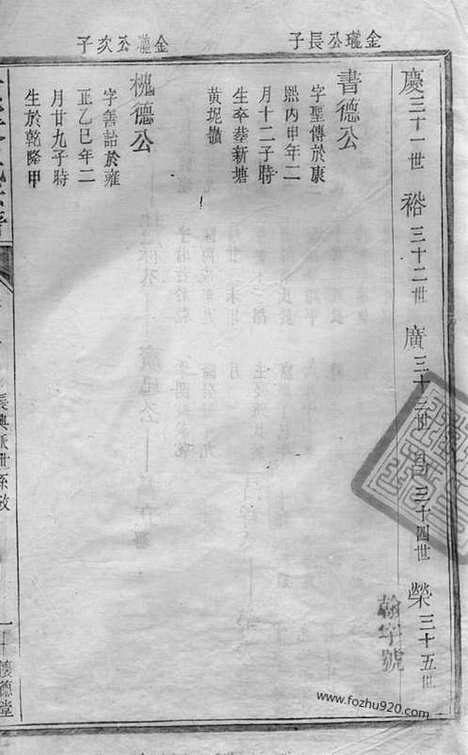 金瓏公長子
金瓏公次子
慶三十一世 裕三十二世 廣三十三世 昌三十四世 榮三十五世
翰字號
書德公
字聖傳於康
熙丙甲年二
月十二子時
生卒葬新塘
黄坭嶺
槐德公
字善詒於雍
正乙巳年二
月廿九子時
生於乾隆甲
長興派世系攷
懷德堂
www.fozhu920.com